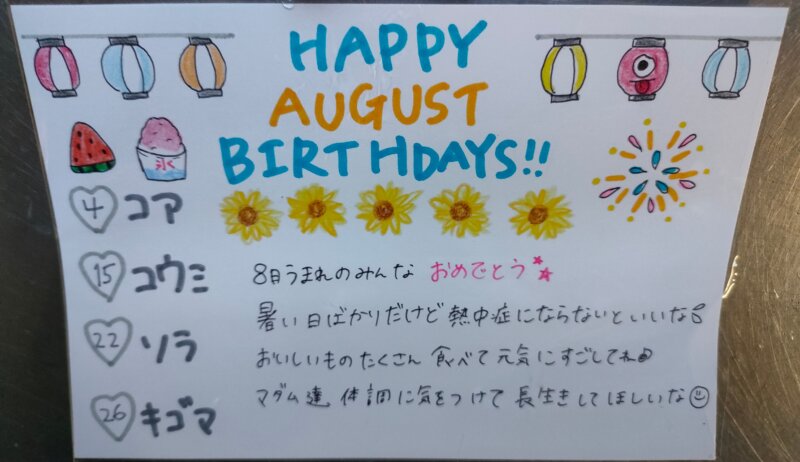 HAPPY
AUGUST
BIRTHDAYS!!
氷
4 コア
15 コウミ
22 ソラ
26 キゴマ
8日うまれのみんな おめでとう
暑い日ばかりだけど 熱中症にならないといいな
おいしいものたくさん 食べて 元気にすごしてね
マダム達、体調に気をつけて 長生きしてほしいな